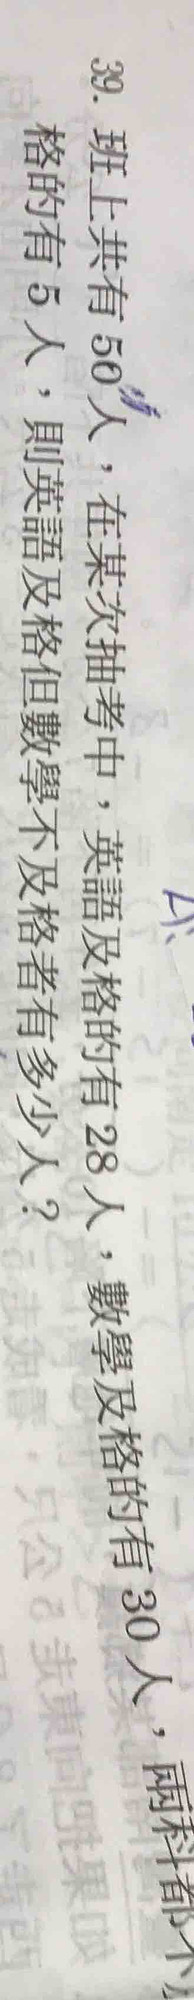 39. 班上共有 50 人，在某次抽考中，英語及格的有 28 人，數學及格的有 30 人，兩科都不
格的有 5 人，則英語及格但數學不及格者有多少人？